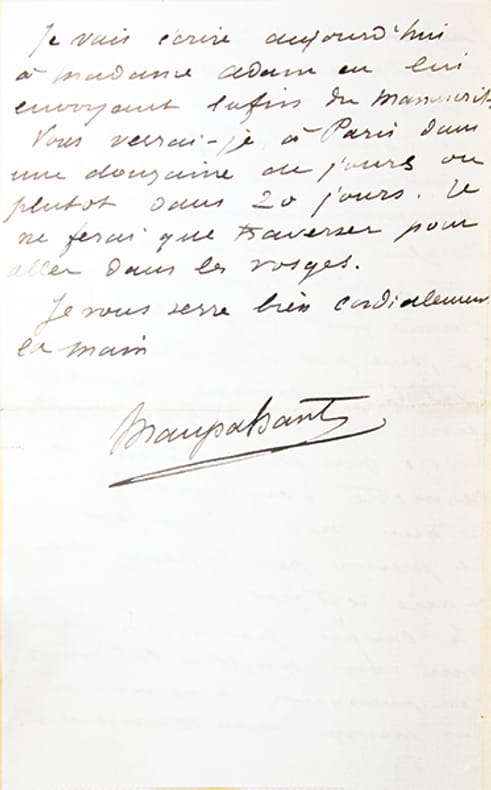 Je vais écrire aujourd'hui
à Madame Adam en lui
envoyant la fin du Manuscrit.
Vous verrai-je à Paris dans
une douzaine de jours ou
plutot dans 20 jours. Je
ne ferai que traverser pour
aller dans les vosges.
Je vous serre bien cordialement
la main
Maupassant